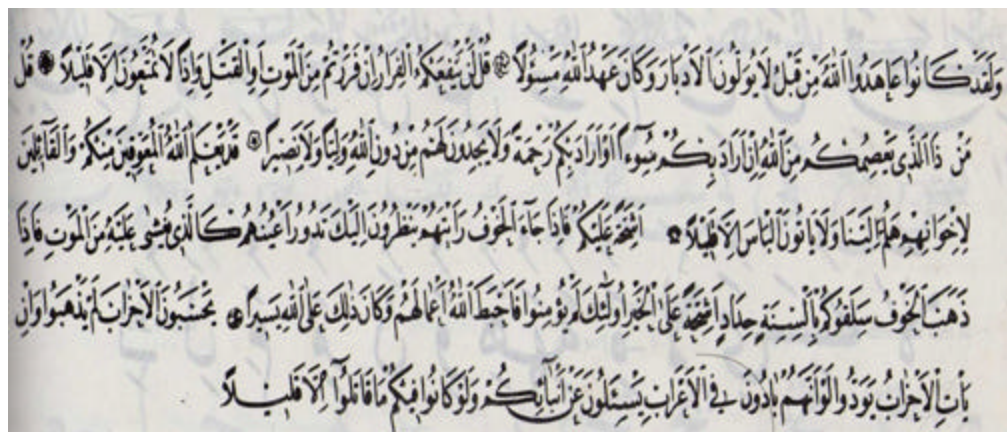 وَلَقَدْ كَانُوا عَاهَدُوا اللّٰهَ مِنْ قَبْلُ لَا يُوَلُّونَ الْاَدْبَارَ وَكَانَ عَهْدُ اللّٰهِ مَسْؤُلًا ۞ قُلْ لَنْ يَنْفَعَكُمُ الْفِرَارُ اِنْ فَرَرْتُمْ مِنَ الْمَوْتِ اَوِ الْقَتْلِ وَاِذًا لَا تُمَتَّعُونَ اِلَّا قَلِيلًا ۞ قُلْ
مَنْ ذَا الَّذِي يَعْصِمُكُمْ مِنَ اللّٰهِ اِنْ اَرَادَ بِكُمْ سُوٓءًا اَوْ اَرَادَ بِكُمْ رَحْمَةً وَلَا يَجِدُونَ لَهُمْ مِنْ دُونِ اللّٰهِ وَلِيًّا وَلَا نَصِيرًا ۞ قَدْ يَعْلَمُ اللّٰهُ الْمُعَوِّقِينَ مِنْكُمْ وَالْقَآئِلِينَ
لِاِخْوَانِهِمْ هَلُمَّ اِلَيْنَا وَلَا يَأْتُونَ الْبَأْسَ اِلَّا قَلِيلًا ۞ اَشِحَّةً عَلَيْكُمْ فَاِذَا جَآءَ الْخَوْفُ رَاَيْتَهُمْ يَنْظُرُونَ اِلَيْكَ تَدُورُ اَعْيُنُهُمْ كَالَّذِي يُغْشٰى عَلَيْهِ مِنَ الْمَوْتِ فَاِذَا
ذَهَبَ الْخَوْفُ سَلَقُوكُمْ بِاَلْسِنَةٍ حِدَادٍ اَشِحَّةً عَلَى الْخَيْرِ اُولٰٓئِكَ لَمْ يُؤْمِنُوا فَاَحْبَطَ اللّٰهُ اَعْمَالَهُمْ وَكَانَ ذٰلِكَ عَلَى اللّٰهِ يَسِيرًا ۞ يَحْسَبُونَ الْاَحْزَابَ لَمْ يَذْهَبُوا وَاِنْ
يَأْتِ الْاَحْزَابُ يَوَدُّوا لَوْ اَنَّهُمْ بَادُونَ فِي الْاَعْرَابِ يَسْـَٔلُونَ عَنْ اَنْبَآئِكُمْ وَلَوْ كَانُوا فِيكُمْ مَا قَاتَلُوٓا اِلَّا قَلِيلًا